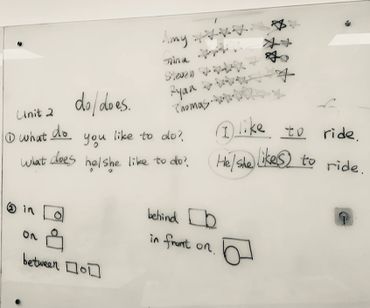 Amy
Tina
Steven
Ryan
Thomas
Unit 2 do/does.
① What do you like to do? I like to ride.
What does he/she like to do? He/she likes to ride.
② in
on
between
behind
in front on.